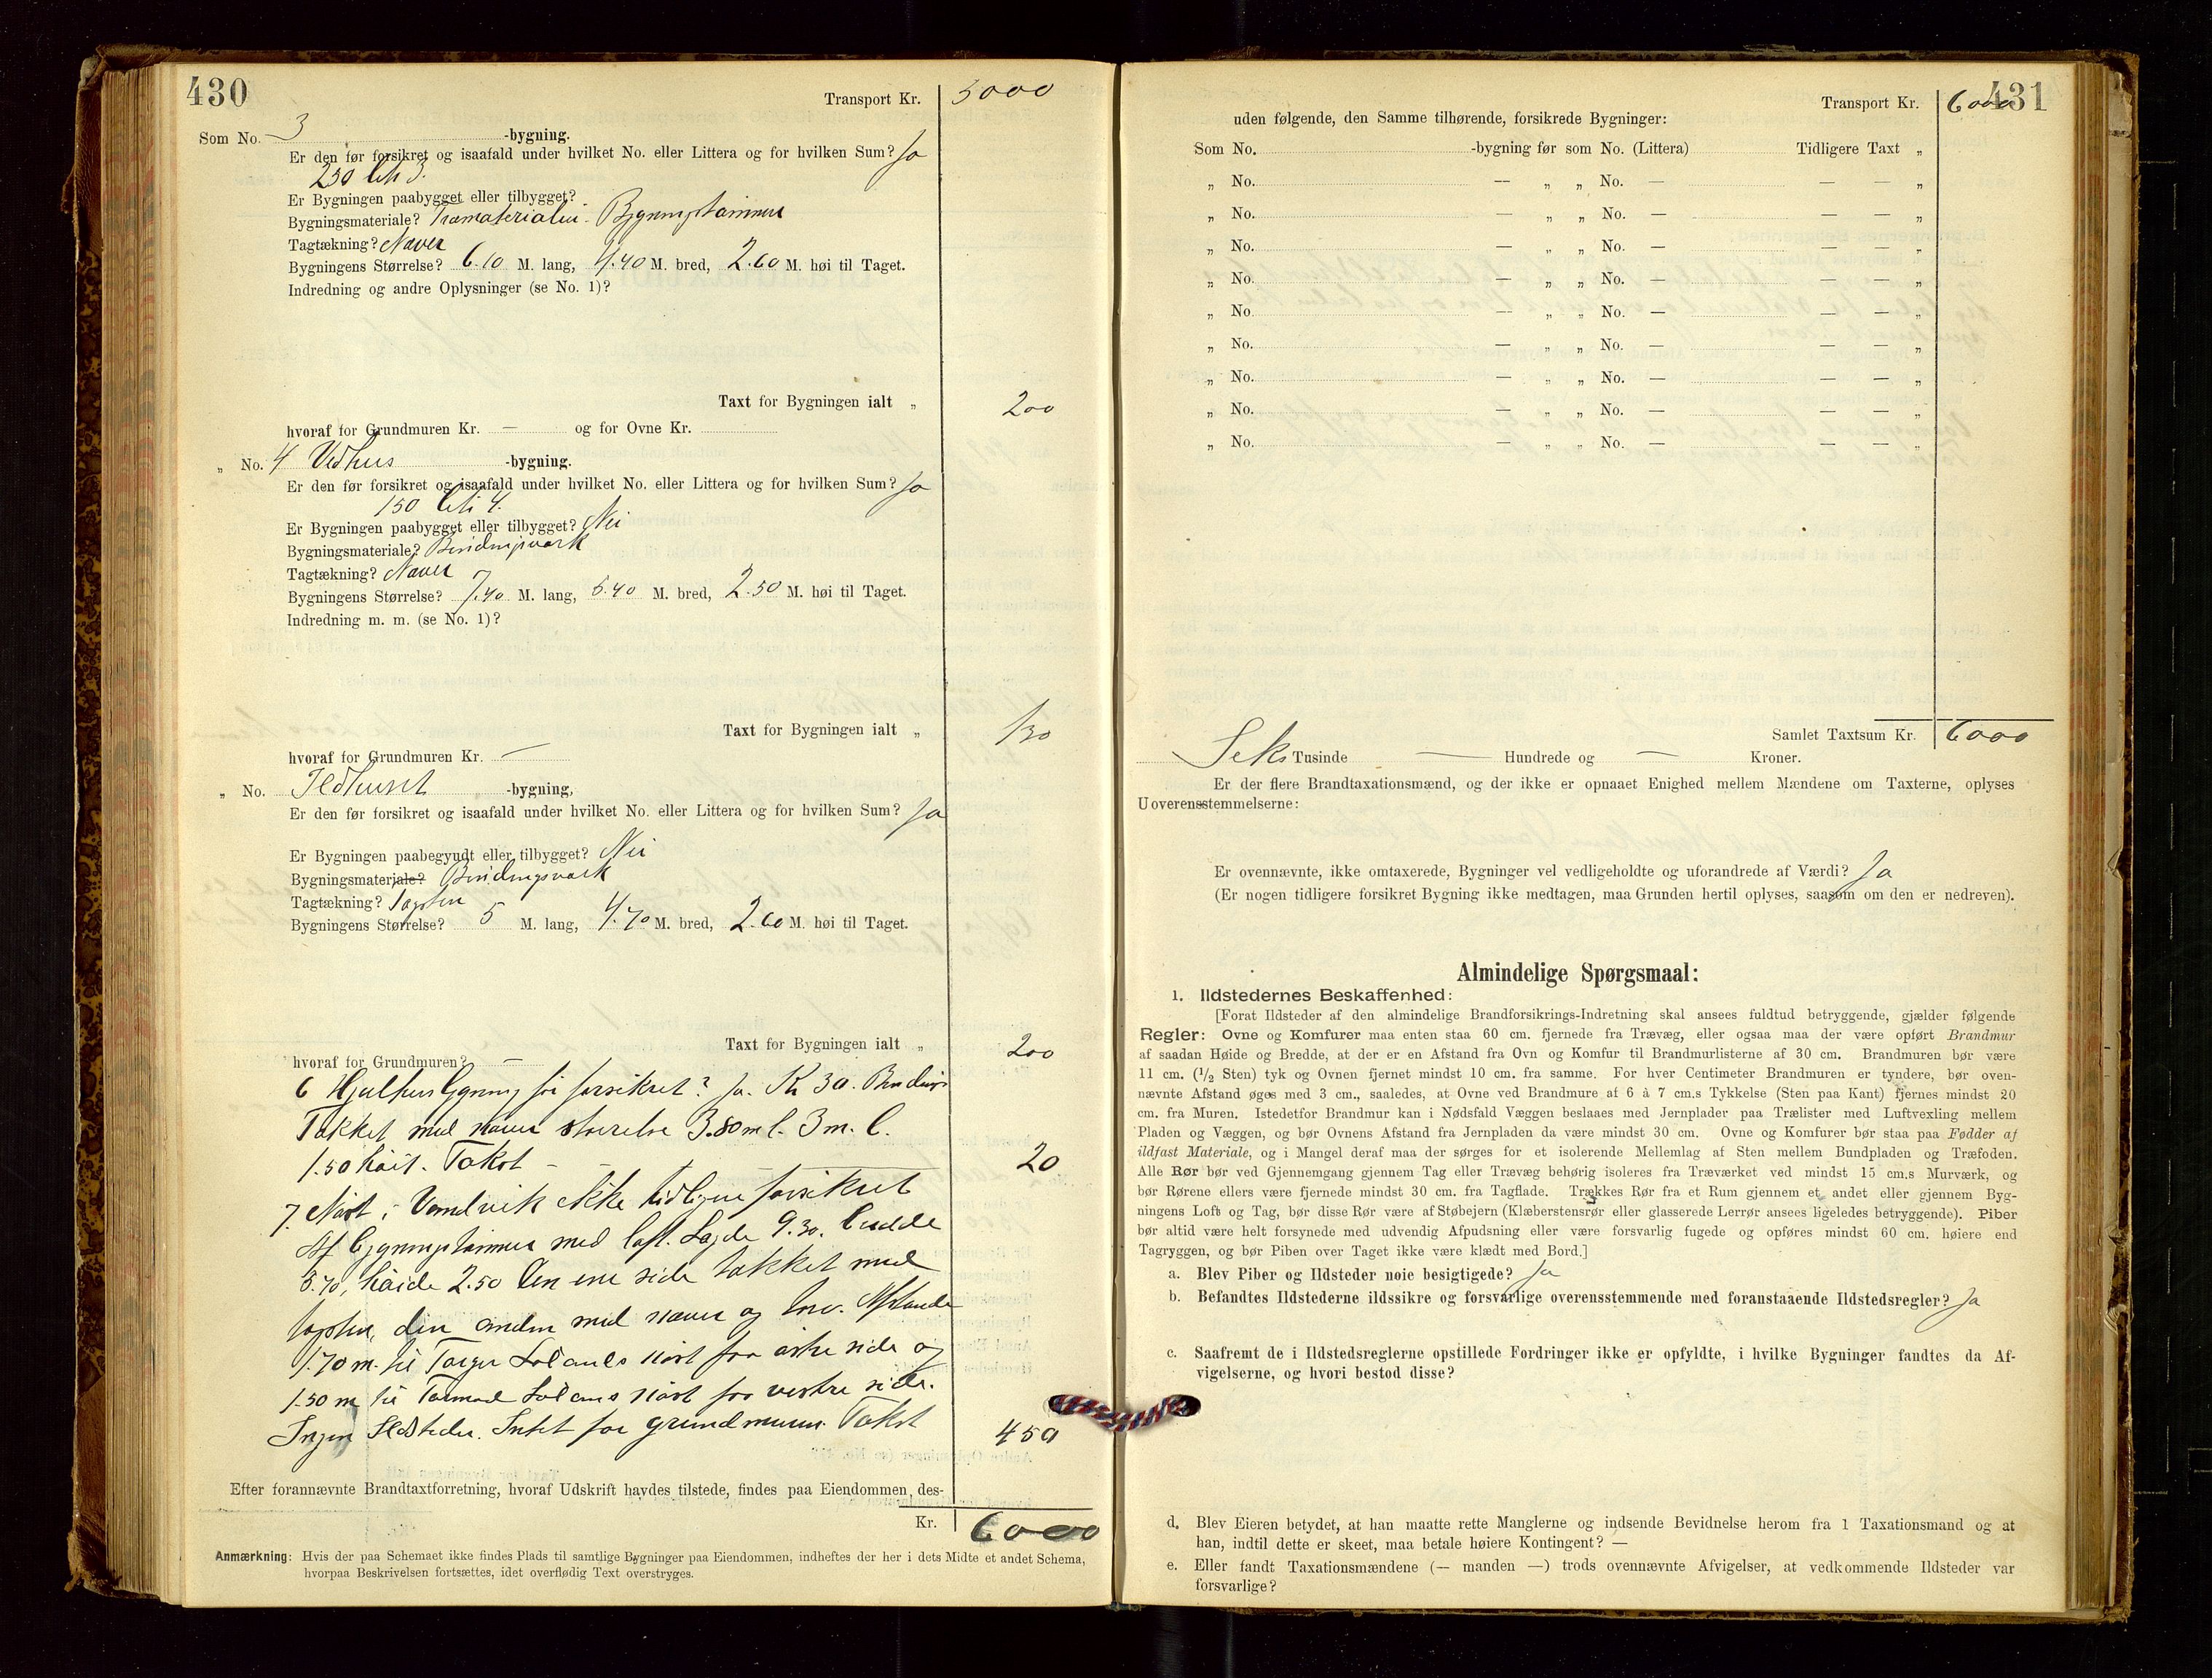 430
Transport Kr. 5000
Som No. 3 -bygning.
Er den før forsikret og isaafald under hvilket No. eller Littera og for hvilken Sum? Ja
250 Litr 3.
Er Bygningen paabygget eller tilbygget?
Bygningsmateriale? Træmaterialer. Bygningstømmer
Tagtækning? Næver
Bygningens Størrelse? 6.10 M. lang, 4.40 M. bred, 2.60 M. høi til Taget.
Indredning og andre Oplysninger (se No. 1)?
Taxt for Bygningen ialt „ 200
hvoraf for Grundmuren Kr. — og for Ovne Kr.
„ No. 4 Vedhus -bygning.
Er den før forsikret og isaafald under hvilket No. eller Littera og for hvilken Sum? Ja
150 Litr 4.
Er Bygningen paabygget eller tilbygget? Nei
Bygningsmateriale? Bindingsværk
Tagtækning? Næver
Bygningens Størrelse? 7.40 M. lang, 5.40 M. bred, 2.50 M. høi til Taget.
Indredning m. m. (se No. 1)?
Taxt for Bygningen ialt „ 130
hvoraf for Grundmuren Kr. —
„ No. Ildhuset -bygning,
Er den før forsikret og isaafald under hvilket No. eller Littera og for hvilken Sum? Ja
Er Bygningen paabegyndt eller tilbygget? Nei
Bygningsmateriale? Bindingsværk
Tagtækning? Tagsten
Bygningens Størrelse? 5 M. lang, 4.70 M. bred, 2.60 M. høi til Taget.
Taxt for Bygningen ialt „ 200
hvoraf for Grundmuren? —
6 Hjulhusbygning før forsikret? Ja. Kr 30. Bindings
Takket med næver størrelse 3.80 m l. 3 m. b.
1.50 høit. Takst - - 20
7. Nøst i Vandvik ikke tidligere forsikret
Af bygningstømmer med loft. Lægde 9.30. bredde
5.70, høide 2.50 Den ene side takket med
tagsten, den anden med næver og torv. Afstande
1.70 m. til Torger Lolands nøst fra østre side og
1.50 m til Tormod Lolands nøst fra vestre side.
Ingen Ildsteder. Intet for grundmuren. Takst 450
Efter forannævnte Brandtaxtforretning, hvoraf Udskrift havdes tilstede, findes paa Eiendommen, des-
Kr. 6000
Anmærkning: Hvis der paa Schemaet ikke findes Plads til samtlige Bygninger paa Eiendommen, indheftes der her i dets Midte et andet Schema,
hvorpaa Beskrivelsen fortsættes, idet overflødig Text overstryges.
431
Transport Kr. 6000
uden følgende, den Samme tilhørende, forsikrede Bygninger:
Som No. -bygning før som No. (Littera) Tidligere Taxt „
„ No. — „ „ No. — — — „
„ No. — „ „ No. — — — „
„ No. — „ „ No. — — — „
„ No. — „ „ No. — — — „
„ No. — „ „ No. — — — „
„ No. — „ „ No. — — — „
„ No. — „ „ No. — — — „
„ No. — „ „ No. — — — „
„ No. — „ „ No. — — — „
Samlet Taxtsum Kr. 6000
Seks Tusinde — Hundrede og — Kroner.
Er der flere Brandtaxationsmænd, og der ikke er opnaaet Enighed mellem Mændene om Taxterne, oplyses
Uoverensstemmelserne:
Er ovennævnte, ikke omtaxerede, Bygninger vel vedligeholdte og uforandrede af Værdi? Ja
(Er nogen tidligere forsikret Bygning ikke medtagen, maa Grunden hertil oplyses, saasom om den er nedreven).
Almindelige Spørgsmaal:
1. Ildstedernes Beskaffenhed:
[Forat Ildsteder af den almindelige Brandforsikrings-Indretning skal ansees fuldtud betryggende, gjælder følgende
Regler: Ovne og Komfurer maa enten staa 60 cm. fjernede fra Trævæg, eller ogsaa maa der være opført Brandmur
af saadan Høide og Bredde, at der er en Afstand fra Ovn og Komfur til Brandmurlisterne af 30 cm. Brandmuren bør være
11 cm. (1/2 Sten) tyk og Ovnen fjernet mindst 10 cm. fra samme. For hver Centimeter Brandmuren er tyndere, bør oven-
nævnte Afstand øges med 3 cm., saaledes, at Ovne ved Brandmure af 6 à 7 cm.s Tykkelse (Sten paa Kant) fjernes mindst 20
cm. fra Muren. Istedetfor Brandmur kan i Nødsfald Væggen beslaaes med Jernplader paa Trælister med Luftvexling mellem
Pladen og Væggen, og bør Ovnens Afstand fra Jernpladen da være mindst 30 cm. Ovne og Komfurer bør staa paa Fødder af
ildfast Materiale, og i Mangel deraf maa der sørges for et isolerende Mellemlag af Sten mellem Bundpladen og Træfoden.
Alle Rør bør ved Gjennemgang gjennem Tag eller Trævæg behørig isoleres fra Træværket ved mindst 15 cm.s Murværk, og
bør Rørene ellers være fjernede mindst 30 cm. fra Tagflade. Trækkes Rør fra et Rum gjennem et andet eller gjennem Byg-
ningens Loft og Tag, bør disse Rør være af Støbejern (Klæberstensrør eller glasserede Lerrør ansees ligeledes betryggende). Piber
bør altid være helt forsynede med udvendig Afpudsning eller være forsvarlig fugede og opføres mindst 60 cm. høiere end
Tagryggen, og bør Piben over Taget ikke være klædt med Bord.]
a. Blev Piber og Ildsteder nøie besigtigede? Ja
b. Befandtes Ildstederne ildssikre og forsvarlige overensstemmende med foranstaaende Ildstedsregler? Ja
c. Saafremt de i Ildstedsreglerne opstillede Fordringer ikke er opfyldte, i hvilke Bygninger fandtes da Af-
vigelserne, og hvori bestod disse?
d. Blev Eieren betydet, at han maatte rette Manglerne og indsende Bevidnelse herom fra 1 Taxationsmand og at
han, indtil dette er skeet, maa betale høiere Kontingent? —
e. Eller fandt Taxationsmændene (— manden —) trods ovennævnte Afvigelser, at vedkommende Ildsteder var
forsvarlige?